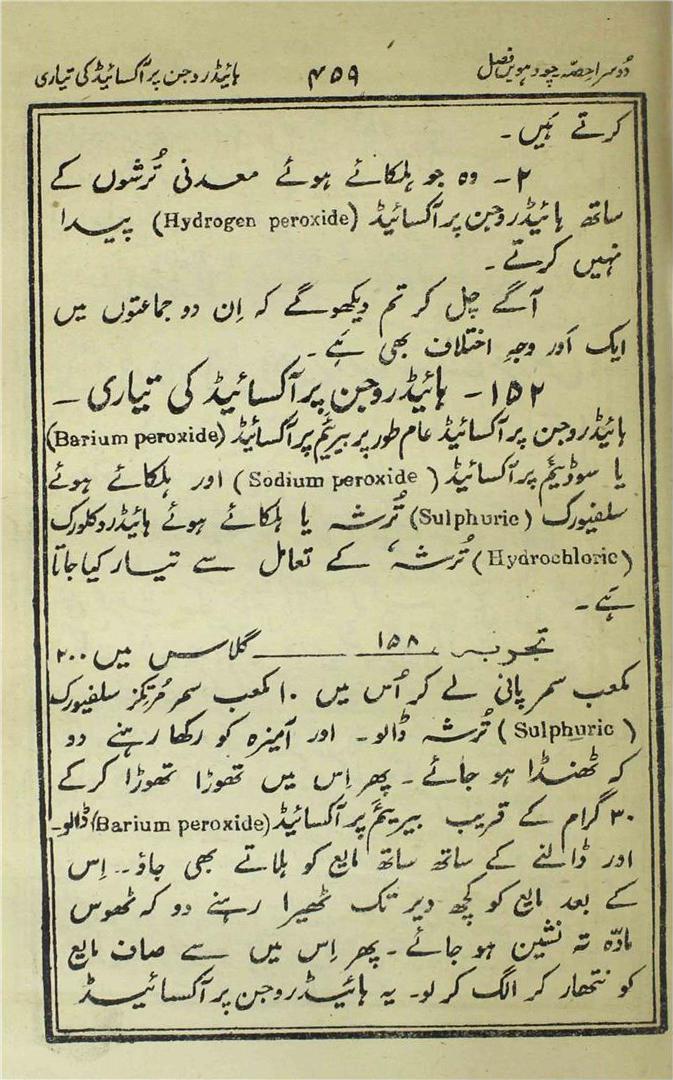 دُوسرا حِصّہ چودہویں فصل ۴۵۹ ہائیڈروجن پر آکسائیڈ کی تیاری
کرتے ہَیں ۔
۲ ۔ وہ جو ہلکائے ہوئے معدنی تُرشوں کے
ساتھ ہائیڈروجن پر آکسائیڈ (Hydrogen peroxide) پیدا
نہیں کرتے ۔
آگے چل کر تم دیکھوگے کہ اِن دو جماعتوں میں
ایک اَور وجہِ اختلاف بھی ہَے ۔
۱۵۲ ۔ ہائیڈروجن پر آکسائیڈ کی تیاری ۔
ہائیڈروجن پر آکسائیڈ عام طور پر بیریَم پر آکسائیڈ (Barium peroxide)
یا سوڈیَم پر آکسائیڈ (Sodium peroxide) اور ہلکائے ہوئے
سلفیورک (Sulphuric) تُرشہ یا ہلکائے ہوئے ہائیڈروکلورک
(Hydrochloric) تُرشہ کے تعامل سے تیار کیا جاتا
ہَے ۔
تجربہ ۱۵۸ گلاس میں ۲۰۰
مکعب سمر پانی لے کر اُس میں ۱۰ مکعب سمر مُرتکز سلفیورک
(Sulphuric) تُرشہ ڈالو ۔ اور آمیزہ کو رکھا رہنے دو
کہ ٹھنڈا ہو جائے ۔ پھر اِس میں تھوڑا تھوڑا کرکے
۳۰ گرام کے قریب بیریَم پر آکسائیڈ (Barium peroxide) ڈالو ۔
اور ڈالنے کے ساتھ ساتھ مایع کو ہلاتے بھی جاؤ ۔ اِس
کے بعد مایع کو کچھ دیر تک ٹھیرا رہنے دو کہ ٹھوس
مادّہ تہ نشین ہو جائے ۔ پھر اِس میں سے صاف مایع
کو نتھار کر الگ کر لو ۔ یہ ہائیڈروجن پر آکسائیڈ